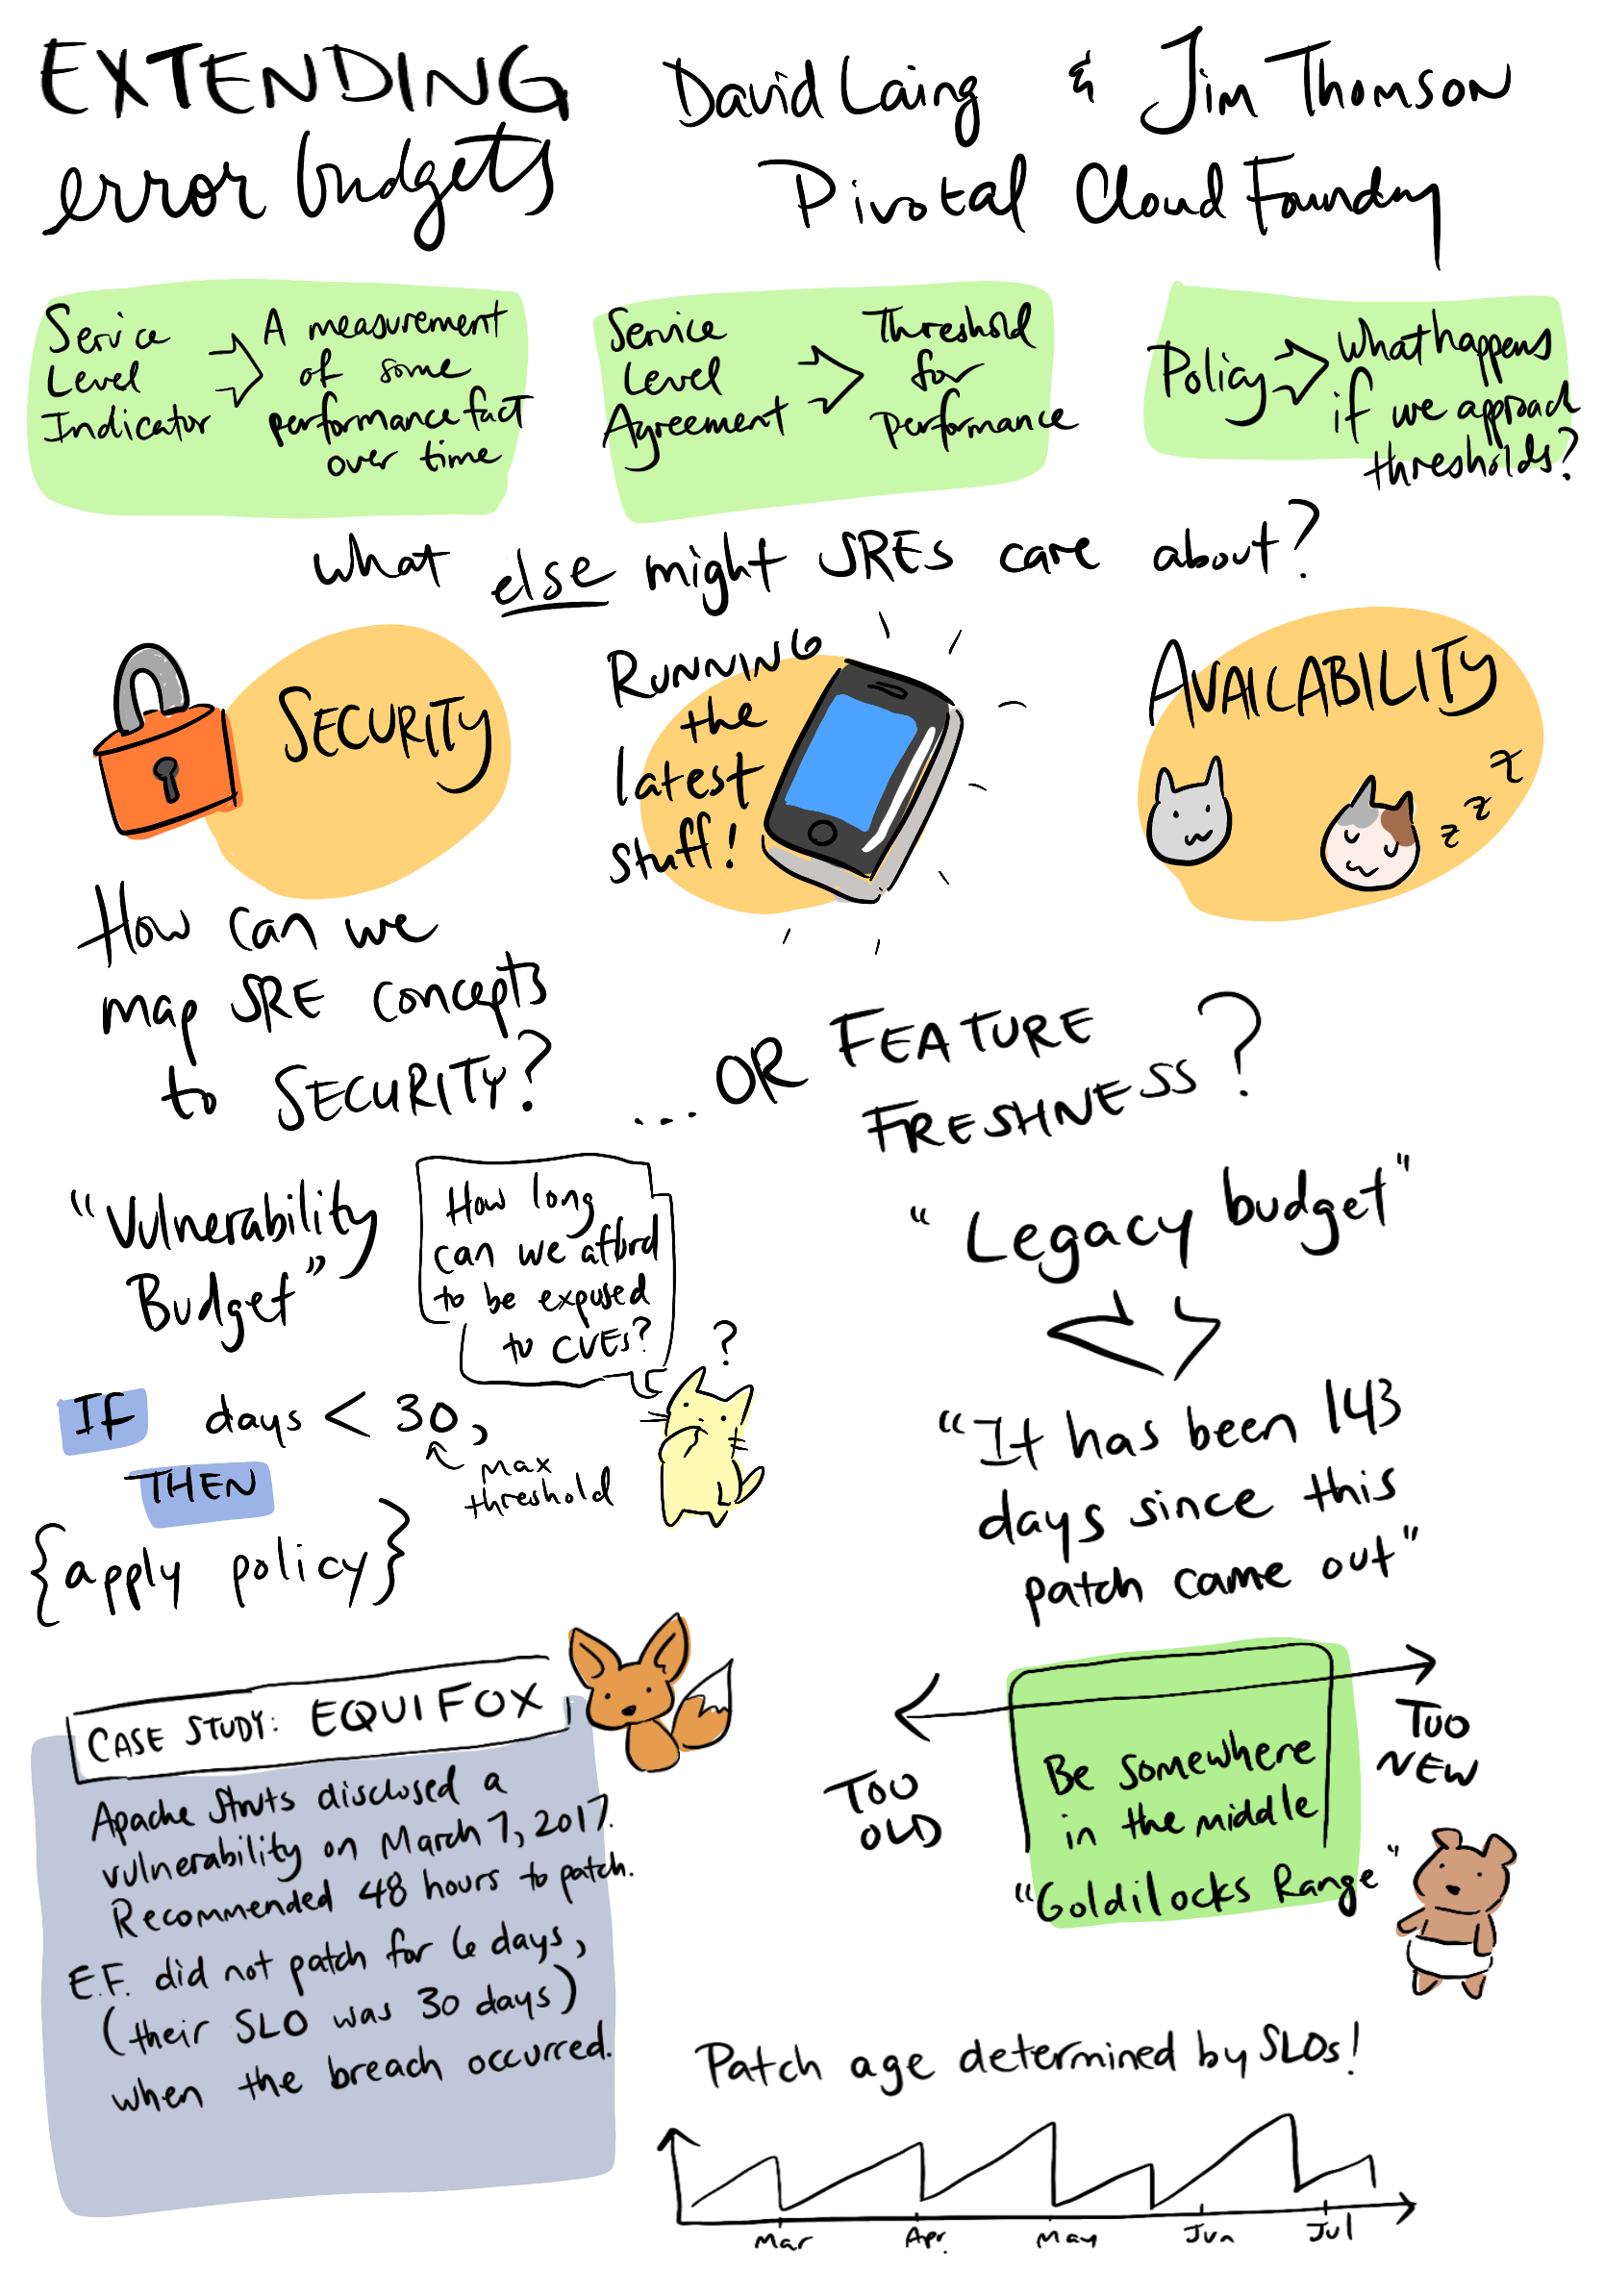 EXTENDING
error budgets
David Laing & Jim Thomson
Pivotal Cloud Foundry
Service
Level
Indicator
A measurement
of some
performance fact
over time
Service
Level
Agreement
Threshold
for
performance
Policy
what happens
if we approach
thresholds?
what else might SREs care about?
SECURITY
RUNNING
the
latest
stuff!
AVAILABILITY
z z z
How can we
map SRE concepts
to SECURITY?
... OR FEATURE
FRESHNESS?
"Vulnerability
Budget"
How long
can we afford
to be exposed
to CVEs?
?
IF days < 30,
max
threshold
THEN
{apply policy}
"Legacy budget"
"It has been 143
days since this
patch came out"
CASE STUDY: EQUIFOX
Apache Struts disclosed a
vulnerability on March 7, 2017.
Recommended 48 hours to patch.
E.F. did not patch for 6 days,
(their SLO was 30 days)
when the breach occurred.
TOO
OLD
Be somewhere
in the middle
"Goldilocks Range"
TOO
NEW
Patch age determined by SLOs!
Mar Apr. May Jun Jul